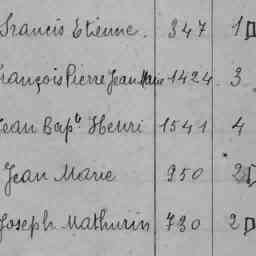 Francis Etienne. 347 1
François Pierre Jean Marie 1424 3
Jean Bapte Henri 1541 4
Jean Marie 950 2
Joseph Mathurin 730 2